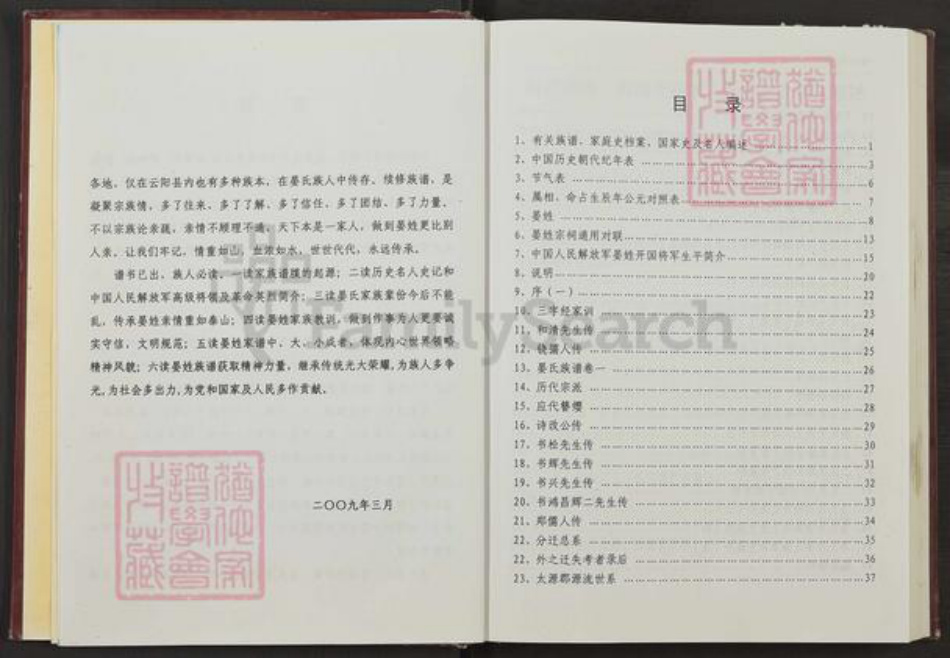 各地，仅在云阳县内也有多种族本，在晏氏族人中传存。续修族谱，是
凝聚宗族情，多了往来、多了了解、多了信任、多了团结、多了力量，
不以宗族论亲疏，亲情不顺理不通。天下本是一家人，做到晏姓更比别
人亲。让我们牢记，情重如山，血浓如水，世世代代，永远传承。
谱书已出，族人必读。一读家族谱牒的起源；二读历史名人史记和
中国人民解放军高级将领及革命英烈简介；三读晏氏家族辈份今后不能
乱，传承晏姓亲情重如泰山；四读晏姓家族教训，做到作事为人更要诚
实守信，文明规范；五读晏姓家谱中，大、小成者，体现内心世界领略
精神风貌；六读晏姓族谱获取精神力量，继承传统光大荣耀，为族人多争
光，为社会多出力，为党和国家及人民多作贡献。
二〇〇九年三月
目 录
1、有关族谱、家庭史档案、国家史及名人编述 1
2、中国历史朝代纪年表 3
3、节气表 6
4、属相、命占生辰年公元对照表 7
5、晏姓 8
6、晏姓宗祠通用对联 13
7、中国人民解放军晏姓开国将军生平简介 15
8、说明 20
9、序（一） 22
10、三字经家训 23
11、和清先生传 24
12、铙孺人传 25
13、晏氏族谱卷一 26
14、历代宗派 27
15、应代簪缨 28
16、诗改公传 29
17、书松先生传 30
18、书辉先生传 31
19、书兴先生传 32
20、书鸿昌辉二先生传 33
21、郑儒人传 34
22、分迁总系 35
22、外之迁失考者录后 36
23、太源郡源流世系 37
FamilySearch